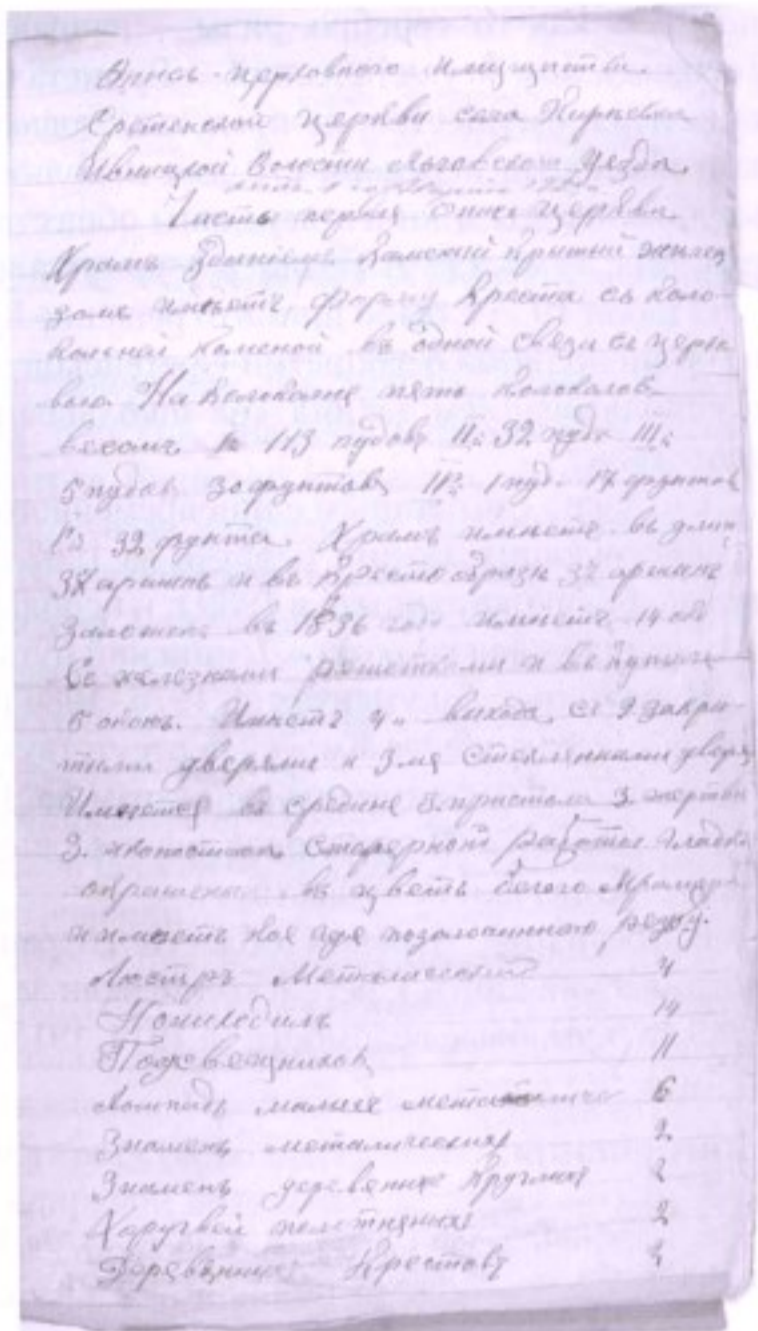 Опись церковного имущества
Сретенской церкви села
Ивницкой Волости Льговского Уезда
Часть первая Опись Церкви
Храмъ зданіемъ Каменый крытый
имѣетъ форму Креста съ коло-
кольней каменой въ одной связи съ церко
вью На колокольне пять колоколов
весомъ 113 пудовъ II: 32 пуда III:
5 пудов 30 фунтов 1 пуд. 17 фунтов
32 фунта. Храмъ имѣетъ въ длин
аршинъ и въ аршинъ
въ 1836 году имѣетъ 14 ок
Со железными решетками и въ
5 оконъ. Имѣетъ 4 выхода съ 9 закри
тыми дверями и 3 мя стеклянными двер
Имѣется въ средине 3 пристола 3. жертвен
3. иконостаса столярной работы гладко
окрашеный въ цветъ белого Мрамура
и имѣетъ кое где позолоченною резбу.
Люстръ Металическихъ 4
14
Подсвещников 11
Лампадъ малыхъ 6
Знаменъ металическихъ 2
Знаменъ деревянне круглых 2
Харугвей полотняных 2
Деревянныхъ Крестовъ 2